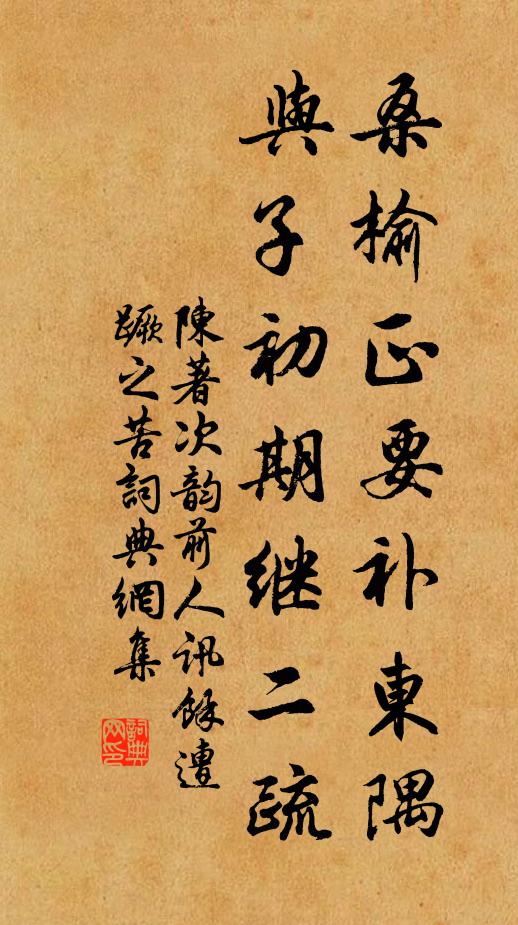 桑榆正要补東隅
與子初期继二疏
陳著次韵前人訊餘遭
蹶之苦詞典網集
詞典网印